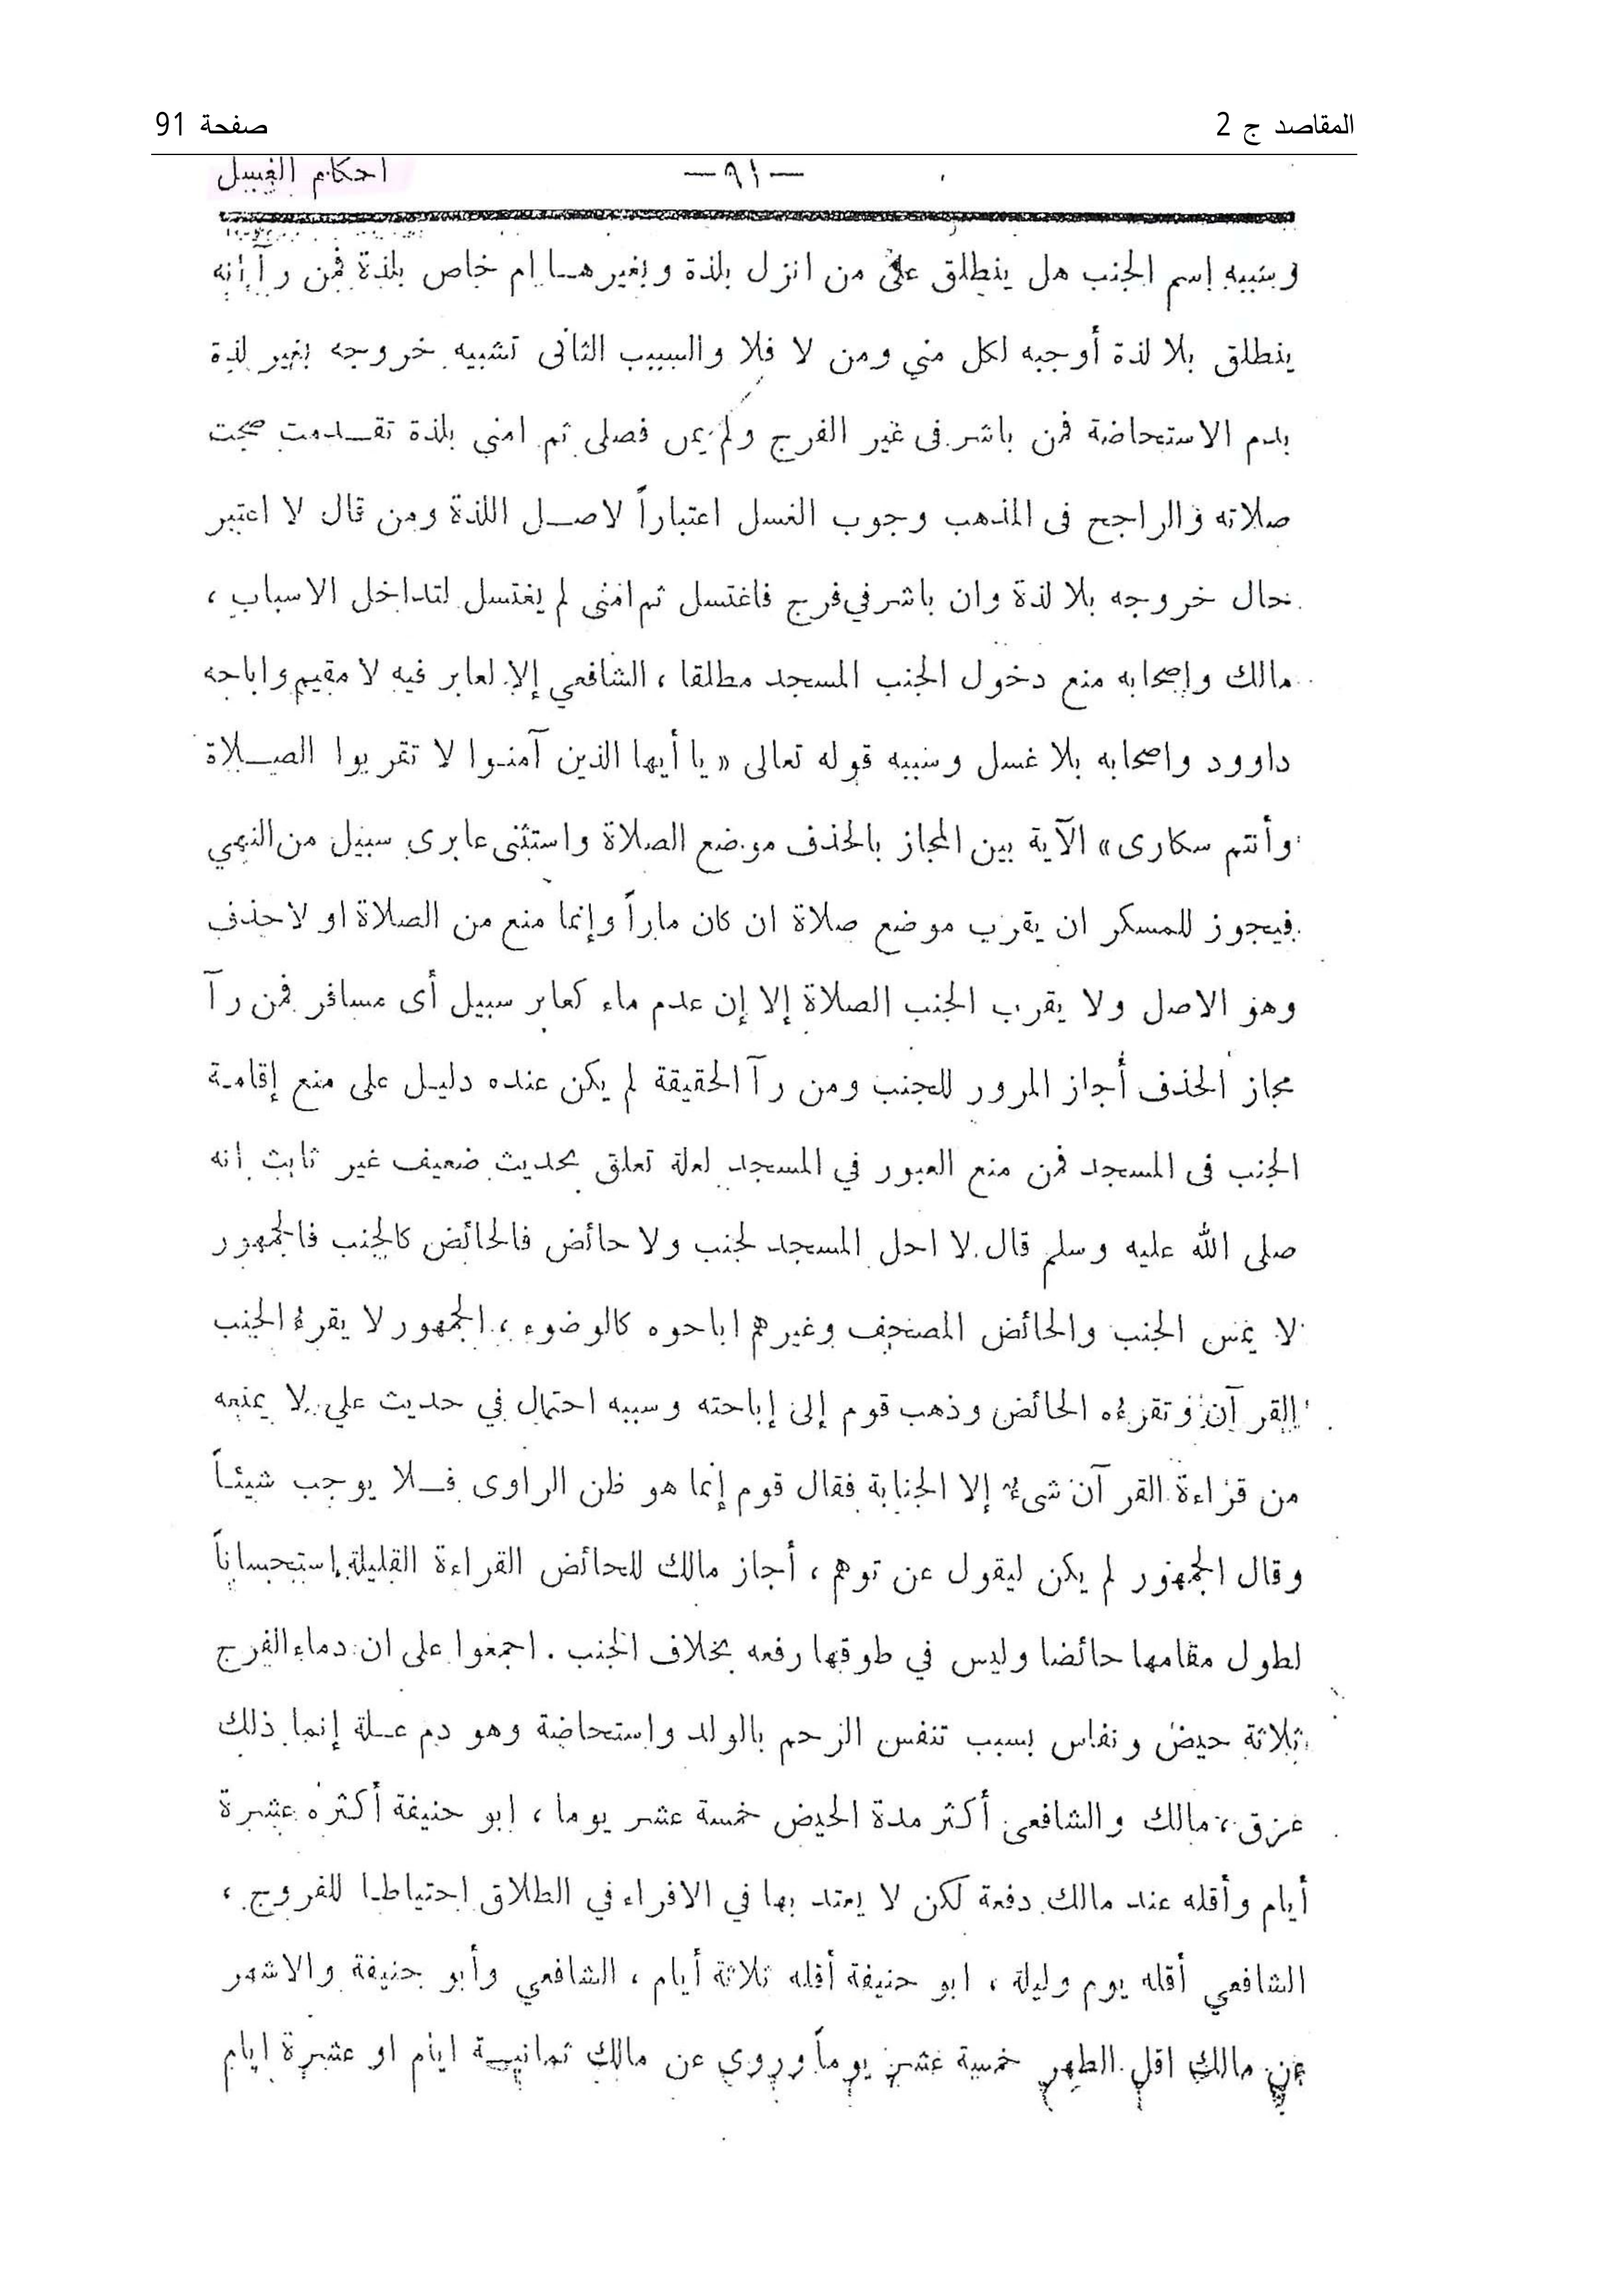 المقاصد ج 2
صفحة 91
—٩١—
احكام الغسل
وسببه إسم الجنب هل ينطلق على من انزل بلذة وبغيرهــا ام خاص بلذة فمن رآ أنه
ينطلق بلا لذة أوجبه لكل مني ومن لا فلا والسبب الثانى تشبيه خروجه بغير لذة
بدم الاستحاضة فمن باشر فى غير الفرج ولم يمن فصلى ثم امني بلذة تقــدمت صحت
صلاته والراجح فى المذهب وجوب الغسل اعتباراً لاصــل اللذة ومن قال لا اعتبر
حال خروجه بلا لذة وان باشر في فرج فاغتسل ثم امنى لم يغتسل لتداخل الاسباب ،
مالك وإصحابه منع دخول الجنب المسجد مطلقا ، الشافعي إلا لعابر فيه لا مقيم واباحه
داوود واصحابه بلا غسل وسببه قوله تعالى « يا أيها الذين آمنوا لا تقربوا الصــلاة
وأنتم سكارى » الآية بين المجاز بالحذف موضع الصلاة واستثنى عابرى سبيل من النهي
فيجوز للمسكر ان يقرب موضع صلاة ان كان ماراً وإنما منع من الصلاة او لا حذف
وهو الاصل ولا يقرب الجنب الصلاة إلا إن عدم ماء كعابر سبيل أى مسافر فمن رآ
مجاز الحذف أجاز المرور للجنب ومن رآ الحقيقة لم يكن عنده دليل على منع إقامة
الجنب فى المسجد فمن منع العبور في المسجد لعلة تعلق بحديث ضعيف غير ثابت انه
صلى الله عليه وسلم قال لا احل المسجد لجنب ولا حائض فالحائض كالجنب فالجمهور
لا يمس الجنب والحائض المصحف وغيرهم اباحوه كالوضوء ، الجمهور لا يقرءُ الجنب
القرآن وتقرءُه الحائض وذهب قوم إلى إباحته وسببه احتمال في حديث علي لا يمنعه
من قراءة القرآن شىءٌ إلا الجنابة فقال قوم إنما هو ظن الراوى فــلا يوجب شيئاً
وقال الجمهور لم يكن ليقول عن توهم ، أجاز مالك للحائض القراءة القليلة إستحساناً
لطول مقامها حائضا وليس في طوقها رفعه بخلاف الجنب . اجمعوا على ان دماء الفرج
ثلاثة حيض ونفاس بسبب تنفس الرحم بالولد واستحاضة وهو دم عــلة إنما ذلك
عرق ، مالك والشافعى أكثر مدة الحيض خمسة عشر يوما ، ابو حنيفة أكثره عشرة
أيام وأقله عند مالك دفعة لكن لا يعتد بها في الاقراء في الطلاق احتياطا للفروج ،
الشافعي أقله يوم وليلة ، ابو حنيفة أقله ثلاثة أيام ، الشافعي وأبو حنيفة والاشهر
عن مالك اقل الطهر خمسة عشر يوماً وروي عن مالك ثمانيــة ايام او عشرة ايام